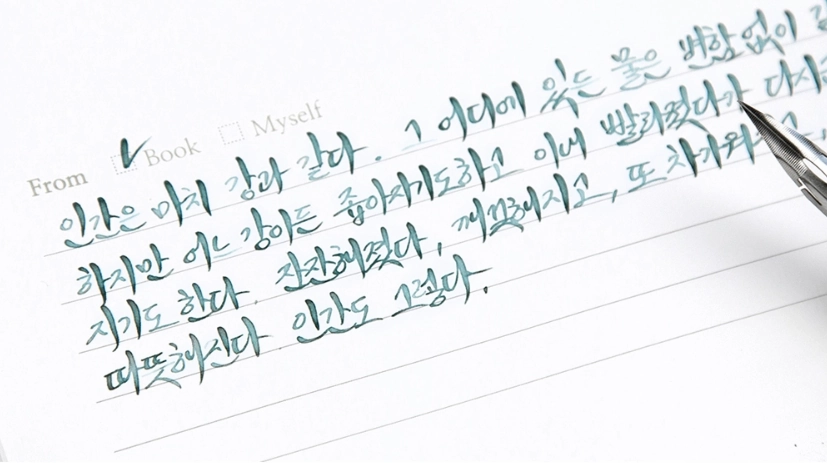 From Book Myself
인간은 마치 강과 같다. 그 어디에 있든 물은 변함 없이
하지만 어느 강이든 좁아지기도하고 이내 빨라졌다가
지기도 한다. 잔잔해졌다, 깨끗해지고, 또
따뜻해진다 인간도 그렇다.